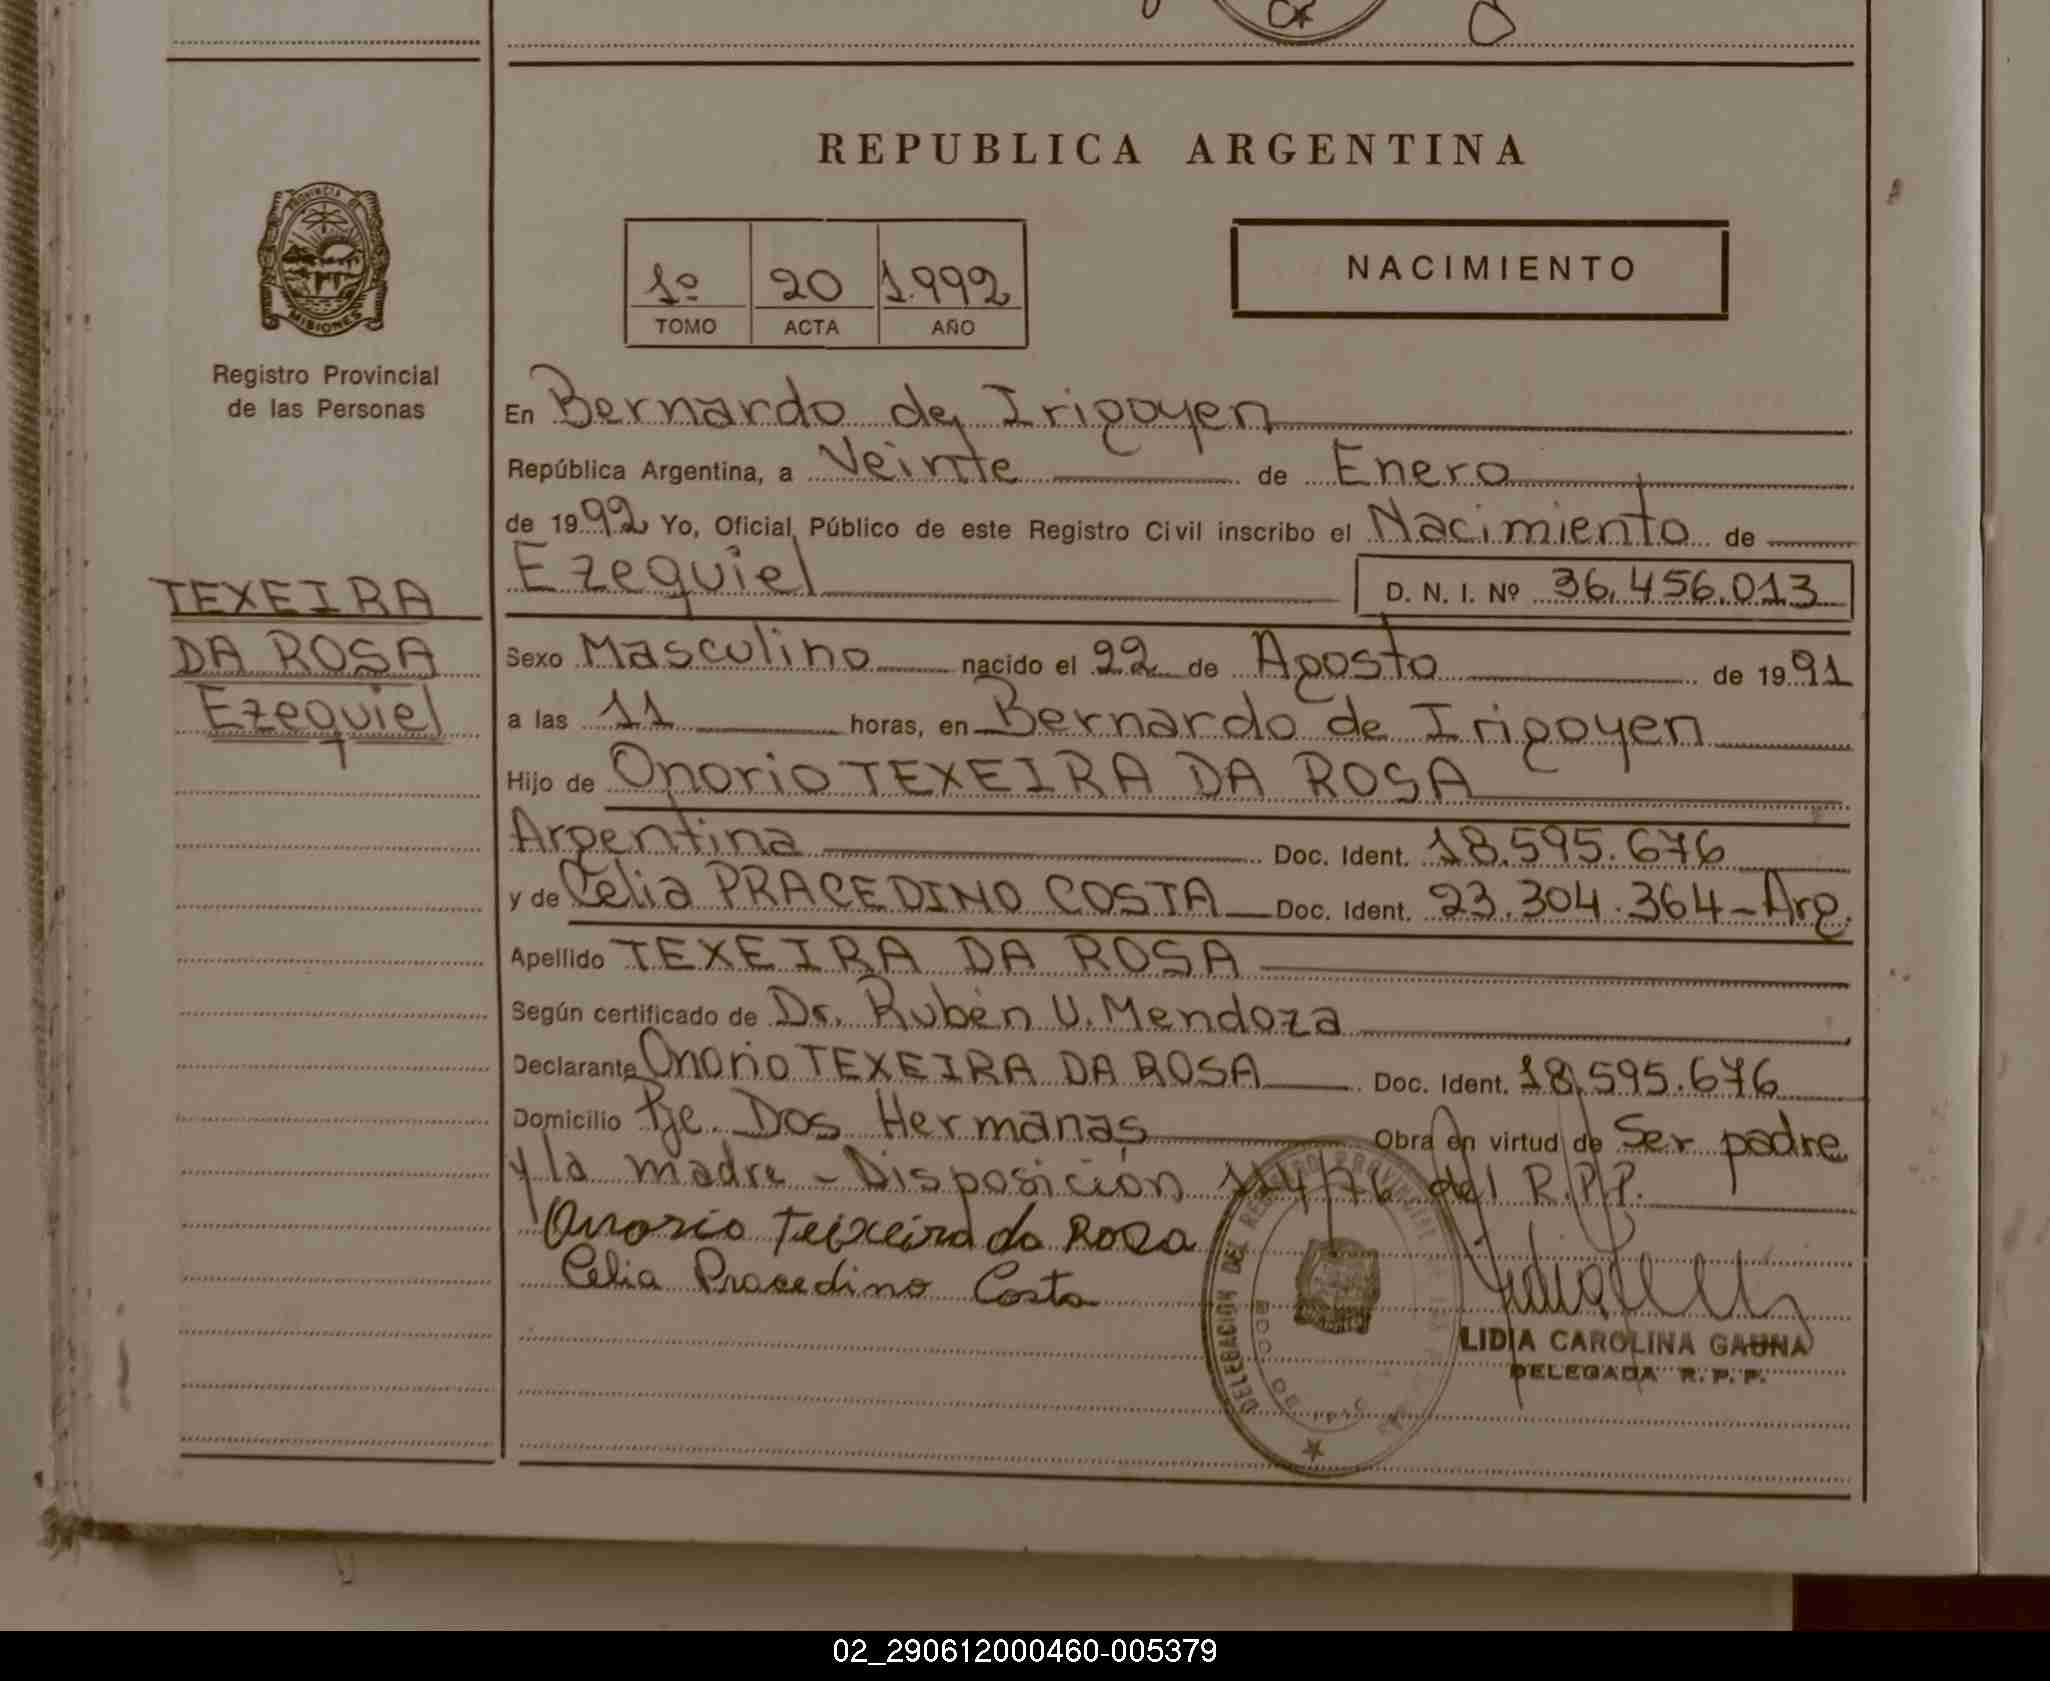 REPUBLICA ARGENTINA
PROVINCIA DE
MISIONES
Registro Provincial
de las Personas
1º 20 1.992
TOMO ACTA AÑO
NACIMIENTO
En Bernardo de Irigoyen
República Argentina, a Veinte de Enero
de 1992 Yo, Oficial Público de este Registro Civil inscribo el Nacimiento de
Ezequiel D. N. I. Nº 36.456.013
TEXEIRA
DA ROSA
Ezequiel
Sexo Masculino nacido el 22 de Agosto de 1991
a las 11 horas, en Bernardo de Irigoyen
Hijo de Onorio TEXEIRA DA ROSA
Argentina Doc. Ident. 18.595.676
y de Celia PRACEDINO COSTA Doc. Ident. 23.304.364-Arg.
Apellido TEXEIRA DA ROSA
Según certificado de Dr. Rubén U. Mendoza
Declarante Onorio TEXEIRA DA ROSA Doc. Ident. 18.595.676
Domicilio Pje. Dos Hermanas Obra en virtud de Ser padre
y la madre - Disposición 114/76 del R.P.P.
Onorio Teixeira da Rosa
Celia Pracedino Costa
DELEGACION DEL REGISTRO PROVINCIAL
LIDIA CAROLINA GAUNA
DELEGADA R. P. P.
02_290612000460-005379